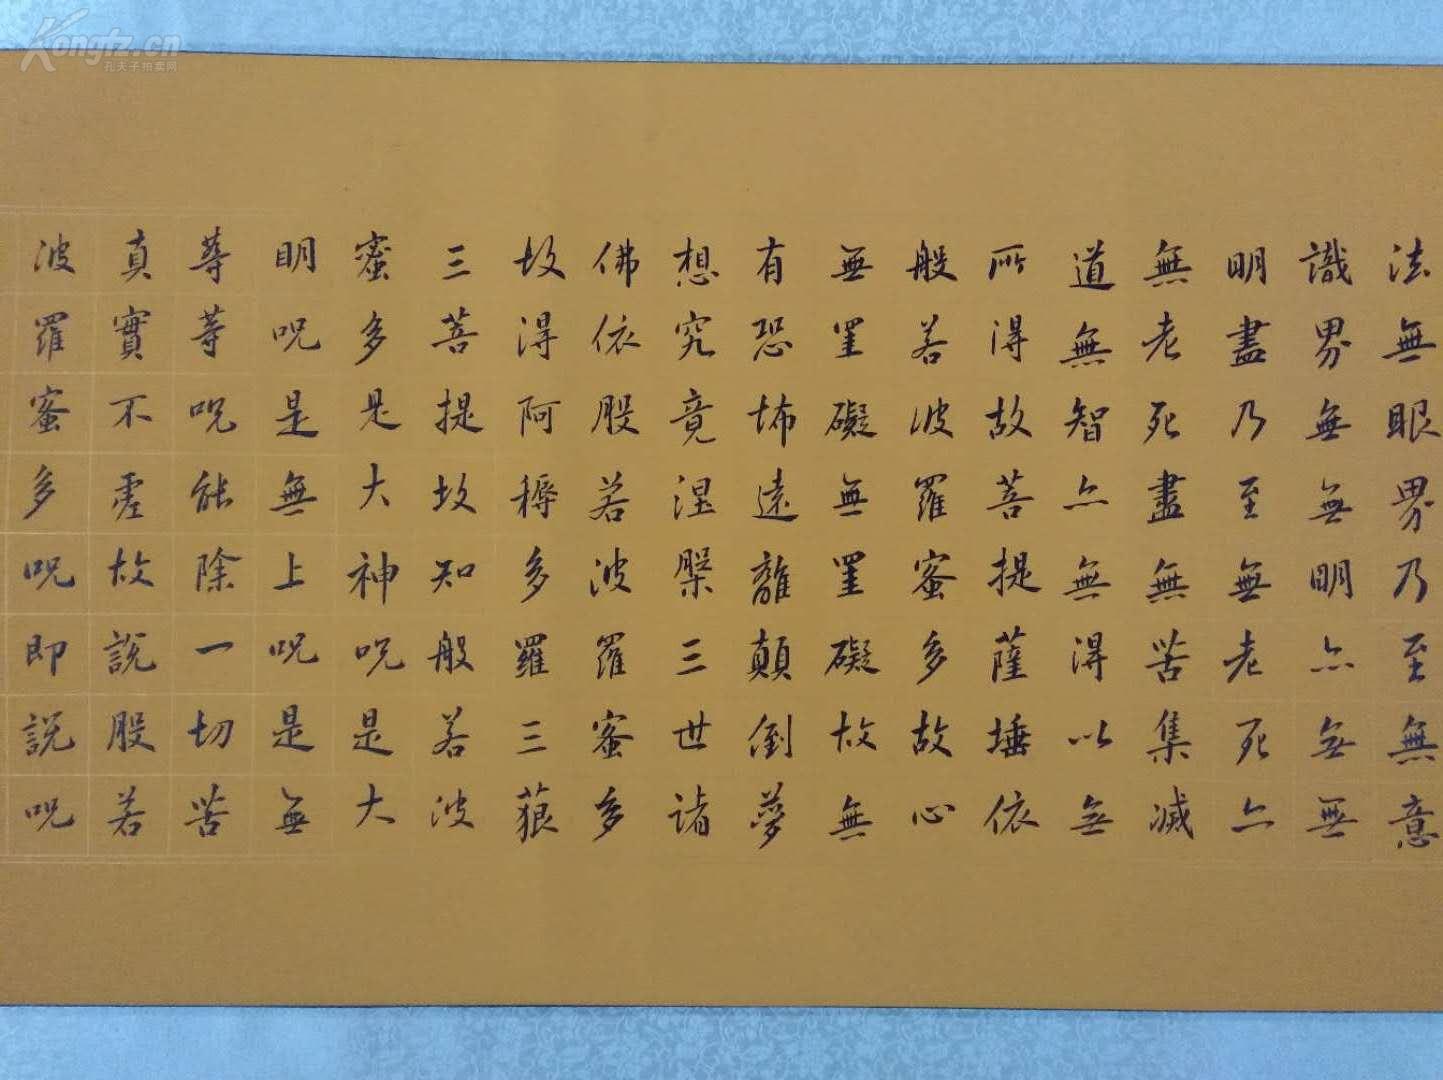 法無眼界乃至無意
識界無無明亦無無
明盡乃至無老死亦
無老死盡無苦集滅
道無智亦無得以無
所得故菩提薩埵依
般若波羅蜜多故心
無罣礙無罣礙故無
有恐怖遠離顛倒夢
想究竟涅槃三世諸
佛依般若波羅蜜多
故得阿耨多羅三藐
三菩提故知般若波
蜜多是大神呪是大
明呪是無上呪是無
等等呪能除一切苦
真實不虛故說般若
波羅蜜多呪即說呪
Kongfz.cn
孔夫子拍卖网